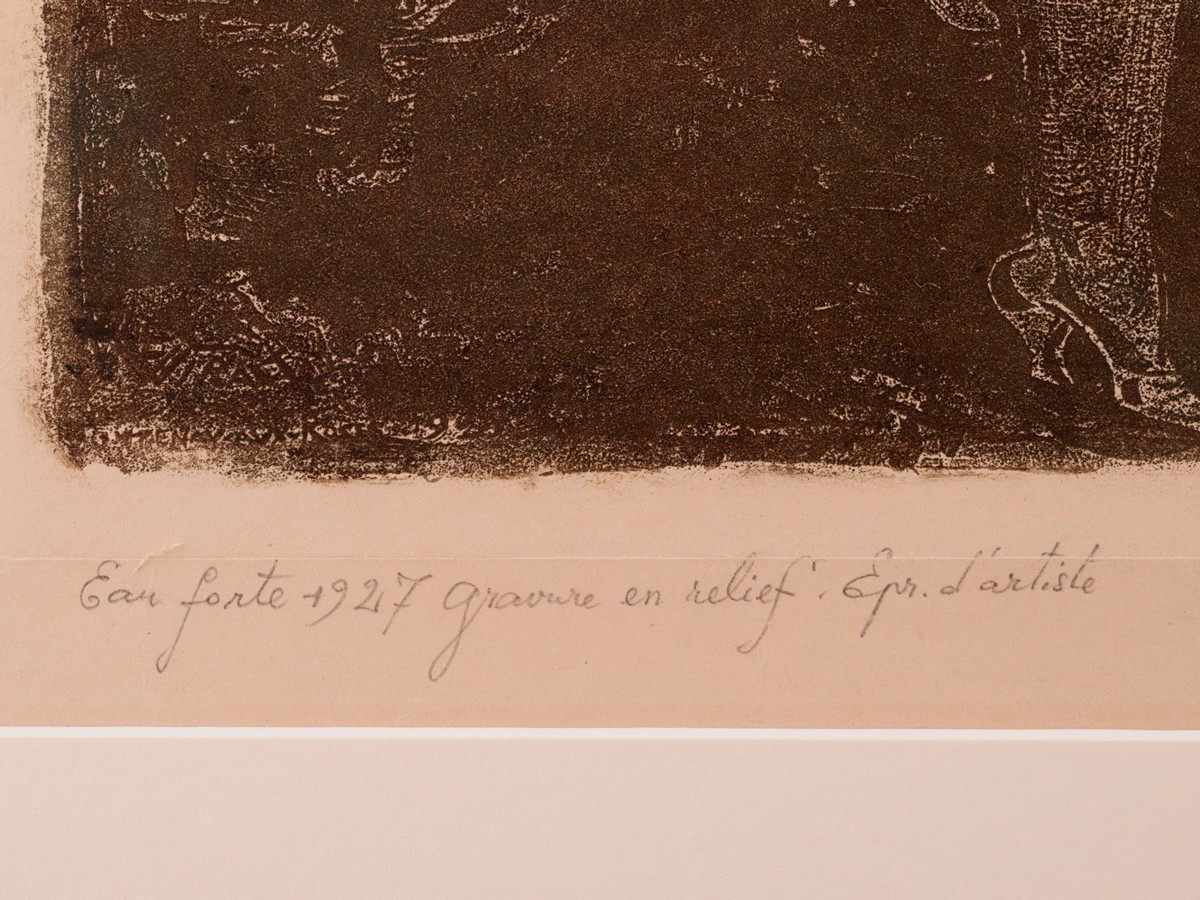 Eau forte 1927 gravure en relief. Epr. d'artiste